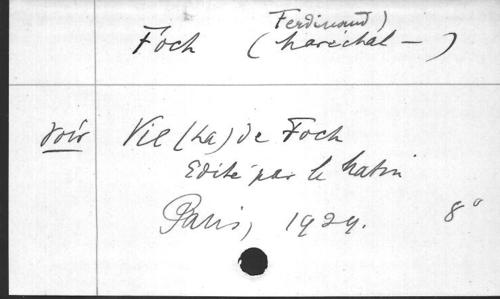 Foch (Ferdinand)
(Maréchal —)
Voir Vie (La) de Foch
Edité par le Matin
Paris, 1929. 8°